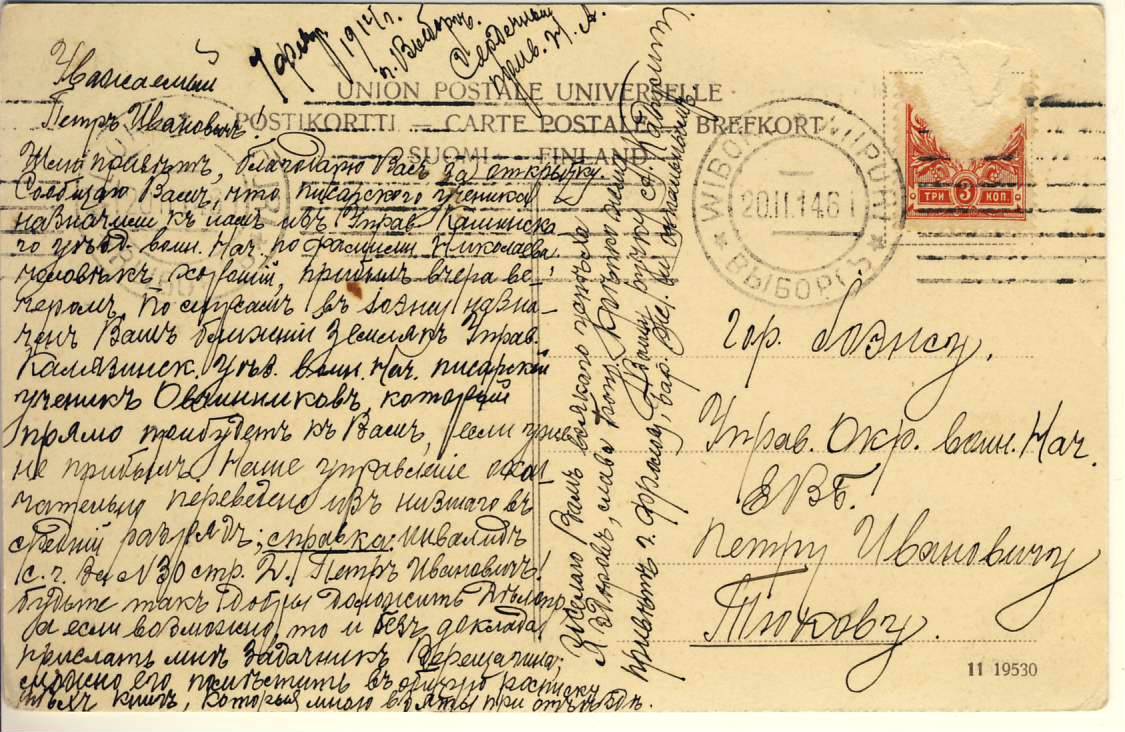 7 февр. 1914 г.
г. Выборгъ.
Сердечный
прив. Н. А.
Уважаемый
Петръ Ивановичъ!
UNION POSTALE UNIVERSELLE
POSTIKORTTI — CARTE POSTALE — BREFKORT
SUOMI — FINLAND
Шлю привѣтъ, благодарю Васъ за открытку.
Сообщаю Вамъ, что писарского ученика
назначили къ намъ изъ Управ. Кашинска
го уѣзд. воин. Нач. по фамиліи Николаева,
человѣкъ хорошій, прибылъ вчера ве-
черомъ. По слухамъ въ Ловизу назна-
ченъ Вашъ ближній землякъ Управ.
Калязинск. Уѣзд. воин. Нач. писарскій
ученикъ Овчинниковъ, который
прямо прибудетъ къ Вамъ, если уже
не прибылъ. Наше управленіе окон-
чательно переведено изъ низшаго въ
средній разрядъ; справка: Инвалидъ
с. г. за № 30 стр. 2. Петръ Ивановичъ!
будьте такъ добры доложить
а если возможно, то и безъ доклада
прислать мнѣ задачникъ Верещагина;
можно его помѣстить въ общую росписку
тѣхъ книгъ, которыя мною взяты при отъѣздѣ.
Я желаю Вамъ всякого успѣха
Я здоровъ, слава Богу. Крѣпко жму
Вашу руку
привѣтъ
WIBORG WIIPURI
20.II.14.6 I
ВЫБОРГЪ
ТРИ 3 КОП.
Гор. Ловизу.
Управ. Окр. воин. Нач.
ЕВБ.
Петру Ивановичу
Тюкову.
11 19530